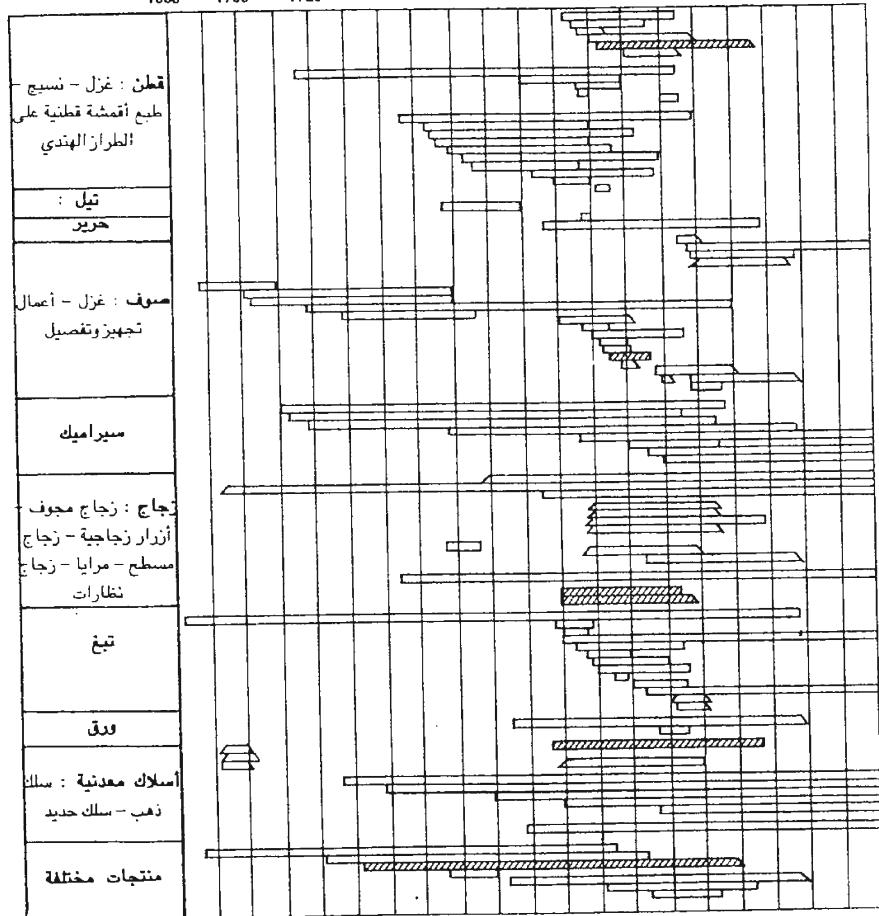 قطن : غزل - نسيج -
طبع أقمشة قطنية على
الطراز الهندي
تيل :
حرير
صوف : غزل - أعمال
تجهيز وتفصيل
سيراميك
زجاج : زجاج مجوف -
أزرار زجاجية - زجاج
مسطح - مرايا - زجاج
نظارات
تبغ
ورق
أسلاك معدنية : سلك
ذهب - سلك حديد
منتجات مختلفة